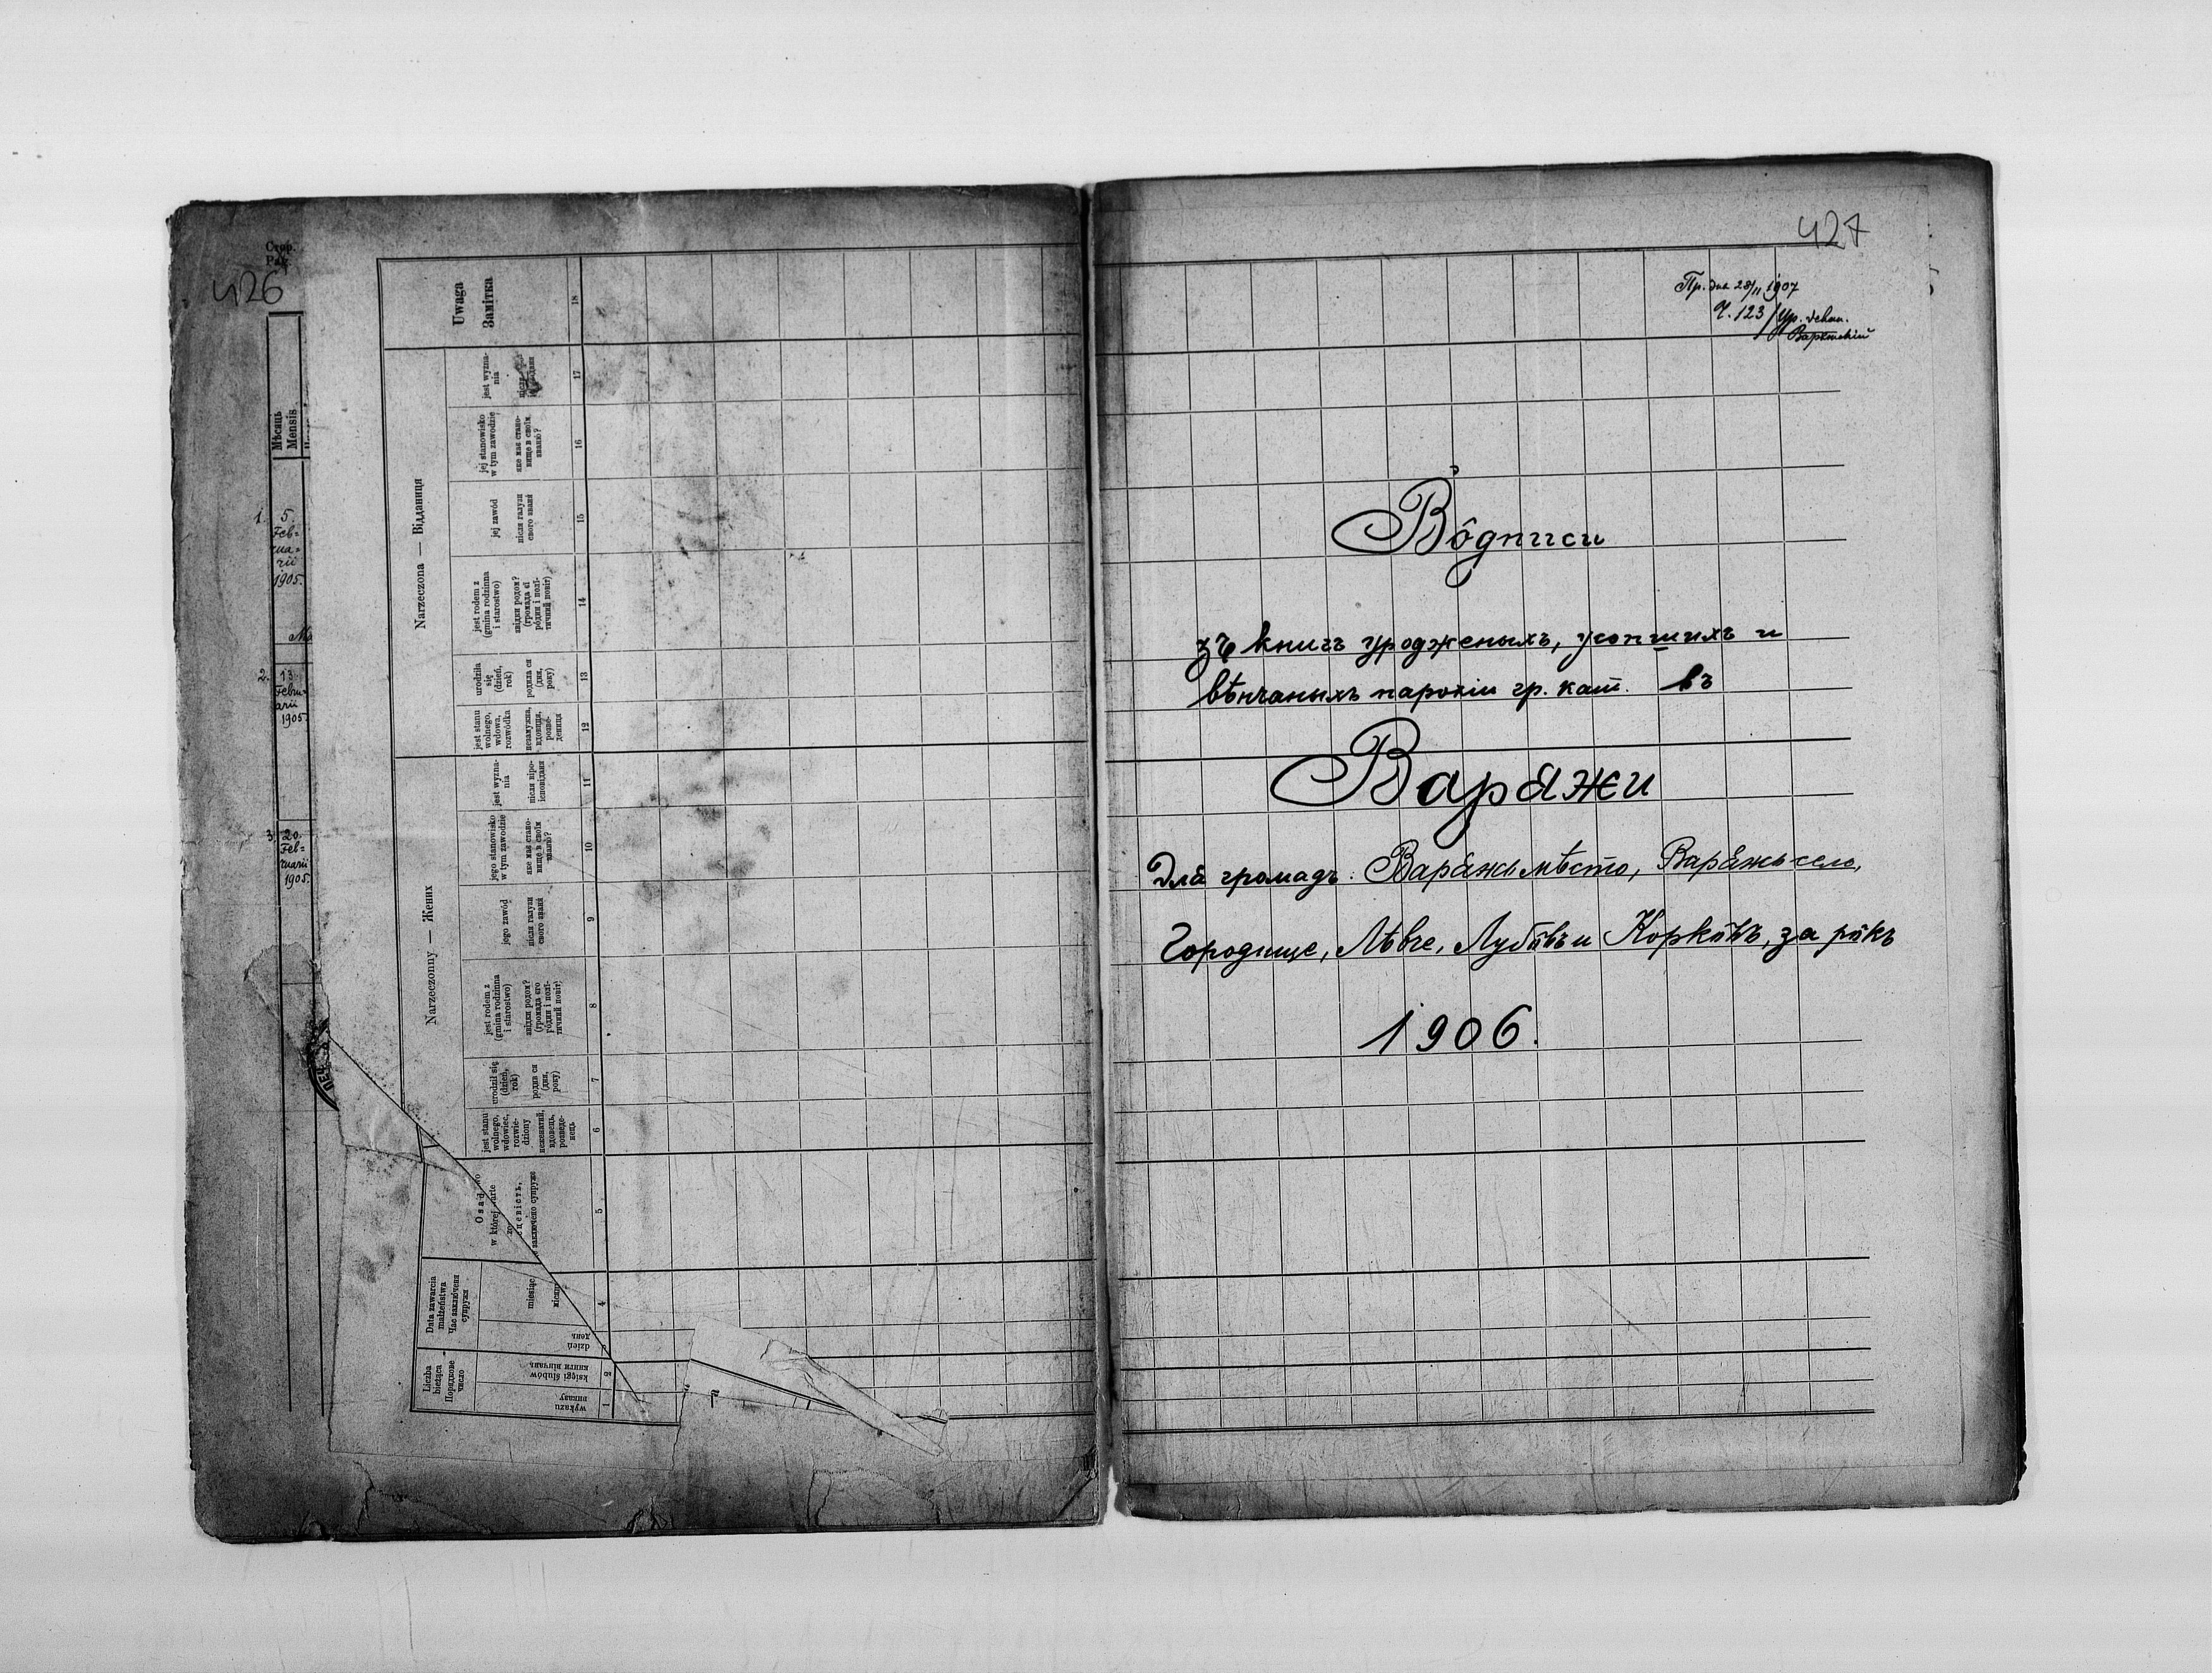 Стор.
Pag.
426
Мѣсяць
Mensis
1. 5.
Feb=
rua=
rii
1905.
2. 13
Febru=
arii
1905.
3. 20.
Feb=
ruarii
1905.
Uwaga
Замітка
18
Narzeczona — Відданиця
jest wyzna-
nia
17
jej stanowisko
w tym zawodzie
яке має стано-
вище в своїм
званю?
16
jej zawód
після галузи
свого званя
15
jest rodem z
(gmina rodzinna
i starostwo)
звідки родом?
(громада єї
родин і полі-
тичний повіт)
14
urodziła
się
(dzień,
rok)
родила ся
(дня,
року)
13
jest stanu
wolnego,
wdowa,
rozwódka
незамужна,
вдовиця,
розве-
дениця
12
Narzeczonny — Жених
jest wyzna-
nia
після віро-
ісповіданя
11
jego stanowisko
w tym zawodzie
яке має стано-
вище в своїм
званю?
10
jego zawód
після галузи
свого званя
9
jest rodem z
(gmina rodzinna
i starostwo)
звідки родом?
(громада єго
родин і полі-
тичний повіт)
8
urodził się
(dzień,
rok)
родив ся
(дня,
року)
7
jest stanu
wolnego,
wdowiec,
rozwie-
dziony
нежонатий,
вдовець,
розведе-
нець
6
w której
заключено супруже
5
Data zawarcia
małżeństwa
Час заключеня
супружа
miesiąc
4
dzień
день
Liczba
bieżąca
Порядкове
число
księgi ślubów
книги вінчань
2
wykazu
виказу
1
427
Пр. дня 28/II 1907
Ч. 123/Ур. декан.
Вôдписи
зъ книгъ урожденыхъ, усопшихъ и
вѣнчаныхъ парохіи гр. кат. въ
Варяжи
Для громадъ: Варяжь мѣсто, Варяжь село,
Городище, Лѣвче, Лубôвъ и Коркôвъ, за рôкъ
1906.